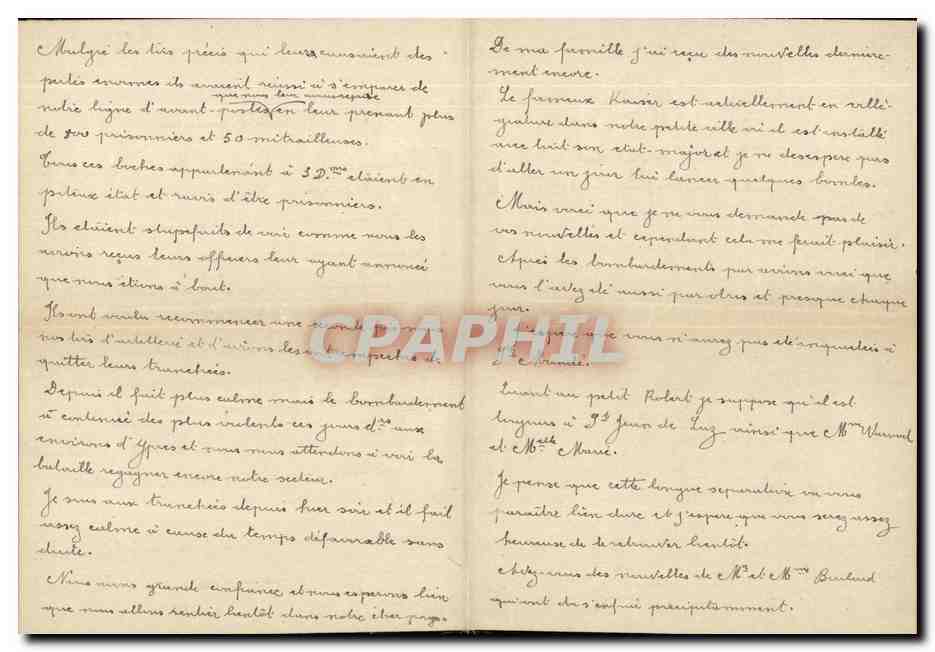 Malgré les tirs précis qui leurs causaient des
pertes enormes ils avaient réussi à s'emparer de
que nous leur avons repris
notre ligne d'avant-postes en leur prenant plus
de 800 prisonniers et 50 mitrailleuses.
Tous ces boches appartenant à 3 D. étaient en
piteux état et ravis d'être prisonniers.
Ils etaient stupefaits de voir comme nous les
avions reçus leurs officiers leur ayant annoncé
que nous étions à bout.
Ils ont voulu recommencer une seconde fois mais
nos tirs d'artillerie et d'avions les ont empechés de
quitter leurs tranchées.
Depuis il fait plus calme mais le bombardement
à continué des plus violents ces jours aux
environs d'Ypres et nous nous attendons à voir la
bataille regagner encore notre secteur.
Je suis aux tranchées depuis hier soir et il fait
assez calme à cause du temps défavorable sans
doute.
Nous avons grande confiance et nous esperons bien
que nous allons rentrer bientôt dans notre cher pays.
De ma famille j'ai reçu des nouvelles dernière-
ment encore.
Le fameux Kaiser est actuellement en villé-
giature dans notre petite ville où il est installé
avec tout son etat-major et je ne desespere pas
d'aller un jour lui lancer quelques bombes.
Mais voici que je ne vous demande pas de
vos nouvelles et cependant cela me ferait plaisir.
Après les bombardements par avions voici que
vous l'avez été aussi par obus et presque chaque
jour.
J'espère que vous n'aurez pas été inquietés à
Quant au petit Robert je suppose qu'il est
toujours à St Jean de Luz ainsi que Mme
et Melle Marie.
Je pense que cette longue separation va vous
paraître bien dure et j'espere que vous serez assez
heureuse de le retrouver bientôt.
Avez-vous des nouvelles de Mr et Mme
qui ont du s'enfuir precipitamment.
CPARHIL